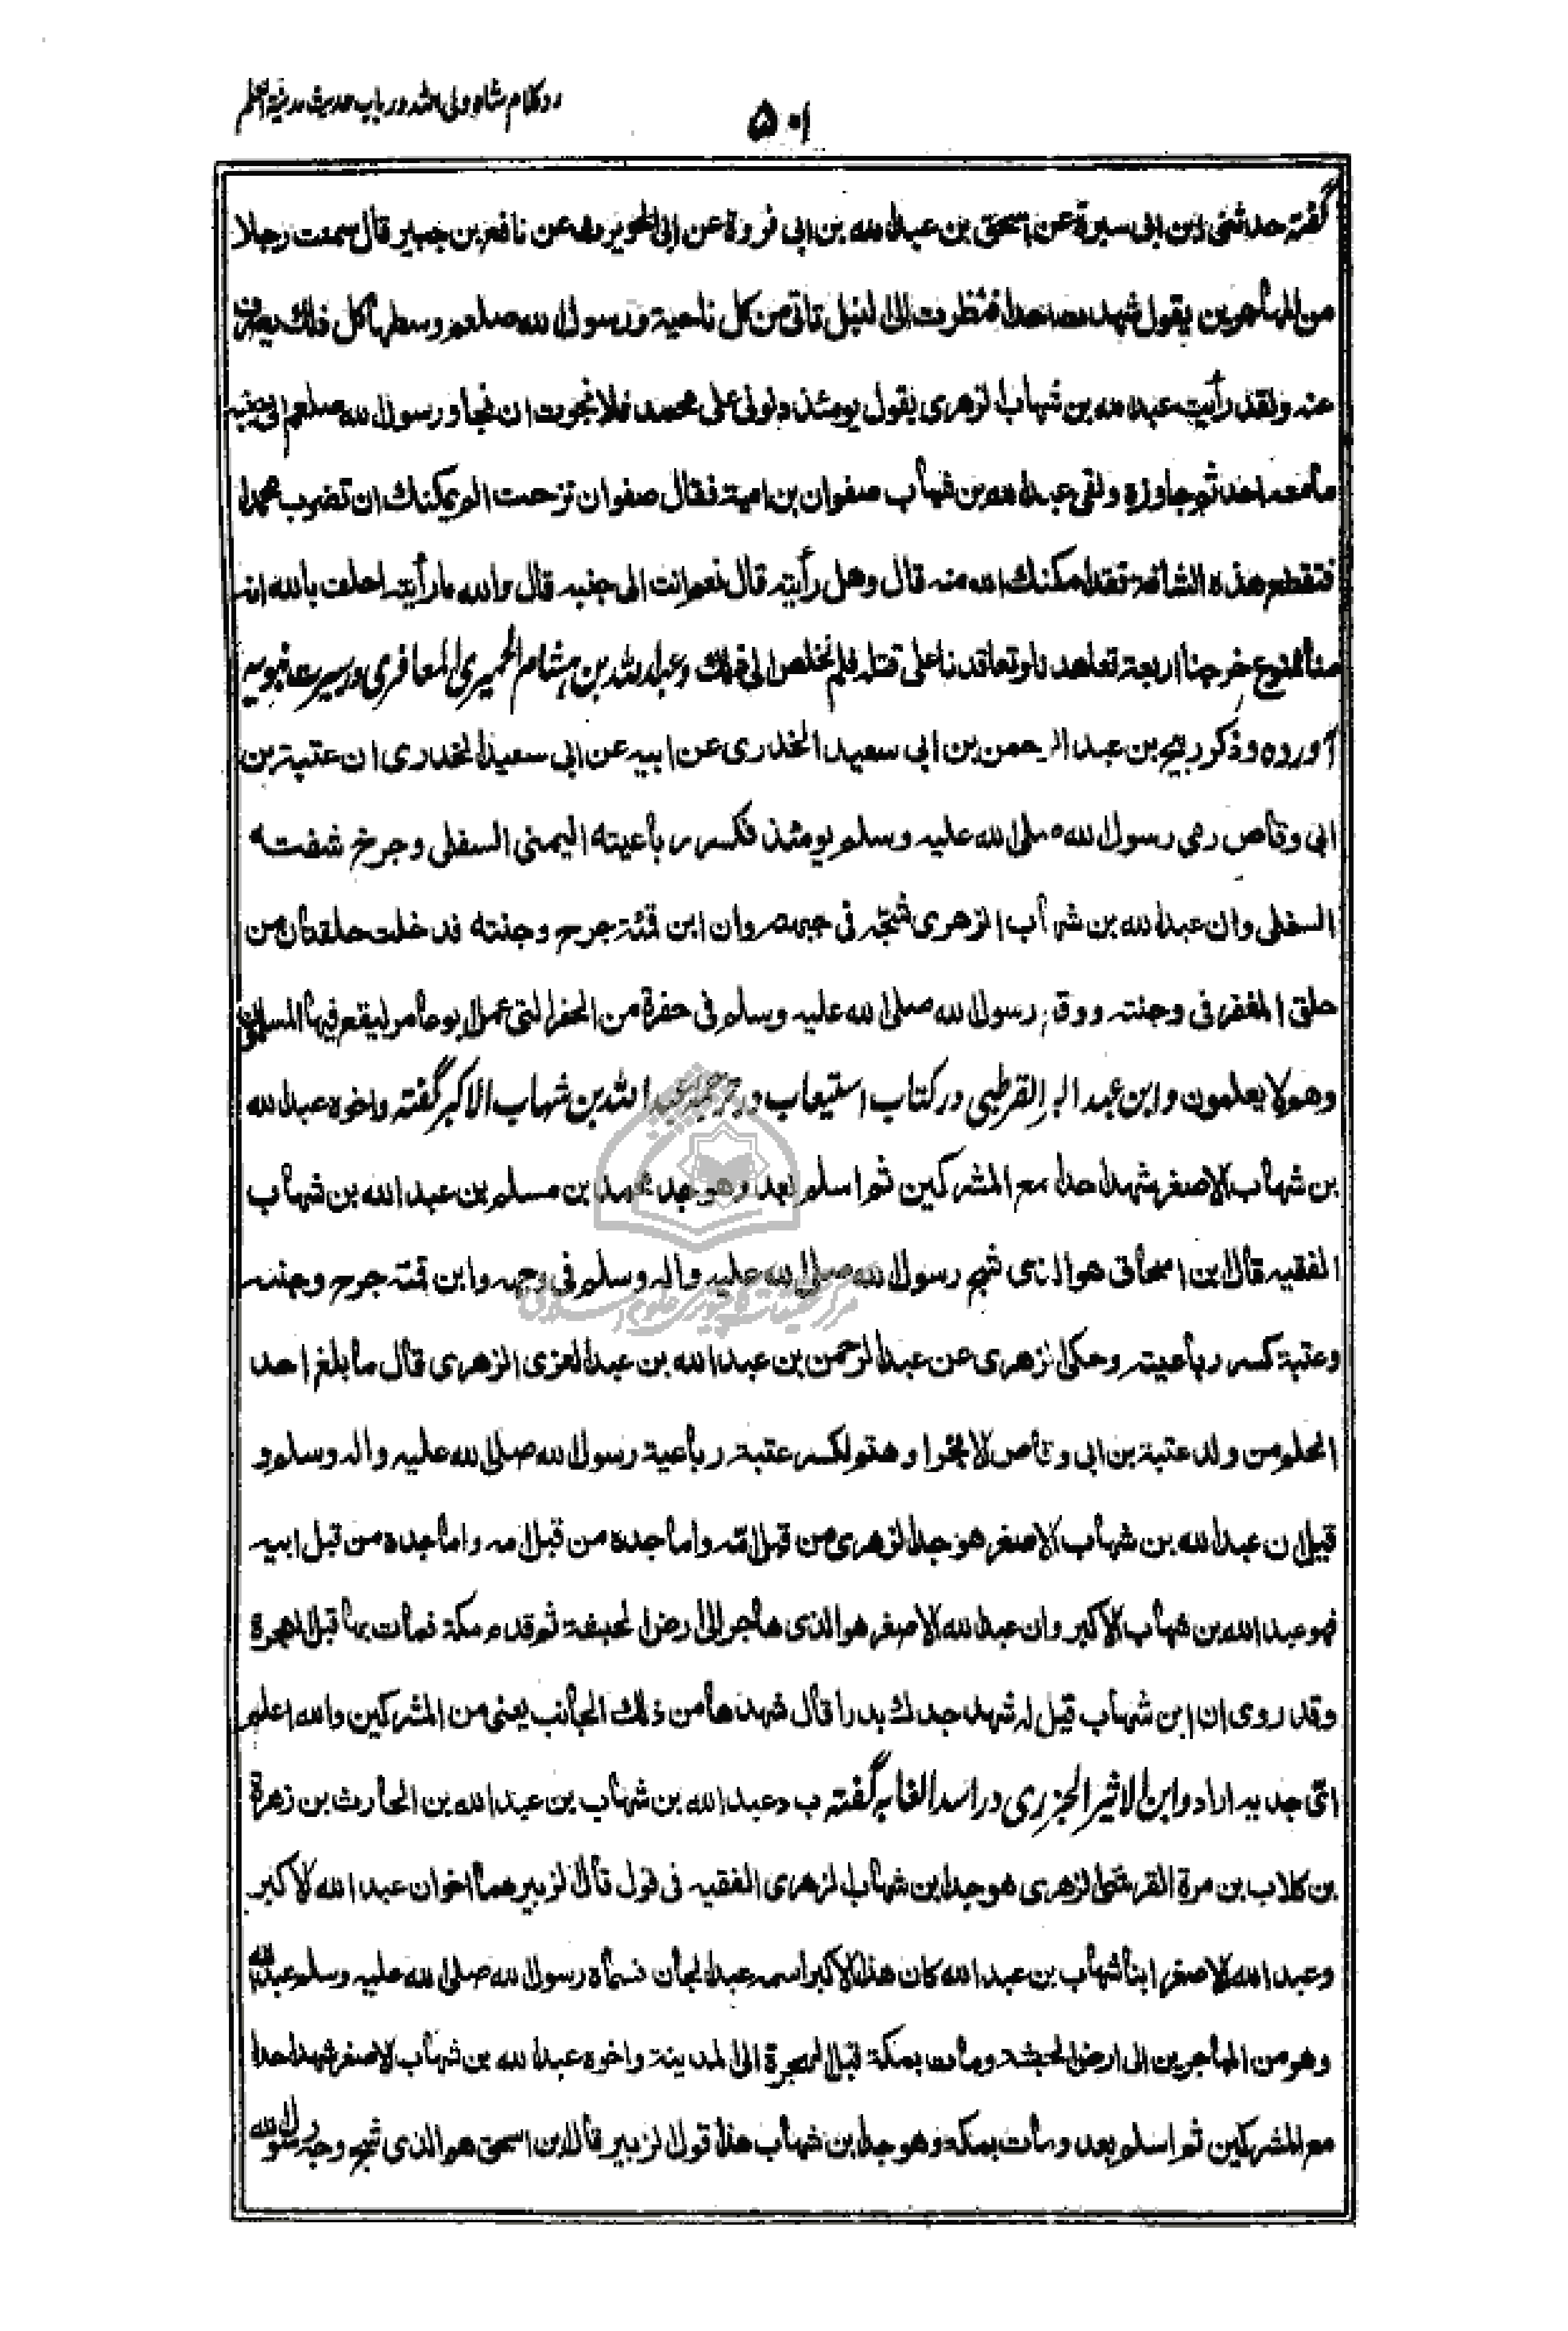 رد کلام شاه ولی الله در باب حدیث مدینة العلم
۵۰۱
گفته حدثنی ابن ابی سبرة عن اسحق بن عبد الله بن ابی فروة عن ابی الحویرث عن نافع بن جبیر قال سمعت رجلا
من المهاجرین یقول شهدت احدا فنظرت الی النبل تاتی من کل ناحیة و رسول الله صلعم وسطها کل ذلك یصرف
عنه ولقد رأیت عبد الله بن شهاب الزهری یقول یومئذ دلونی علی محمد فلا نجوت ان نجا و رسول الله صلعم الی جنبه
ما معه احد ثم جاوزه و لقی عبد الله بن شهاب صفوان بن امیة فقال صفوان ترحت الم یمکنك ان تضرب محمدا
فتقطع هذه الشافة فقد امکنك الله منه قال وهل رأیته قال نعم انت الی جنبه قال والله ما رأیته احلف بالله انه
منا ممنوع خرجنا اربعة تعاهدنا و تعاقدنا علی قتله فلم نخلص الی ذلك و عبد الله بن هشام الحمیری المعافری در سیرت نبویه
آورده و ذکر ربیح بن عبد الرحمن بن ابی سعید الخدری عن ابیه عن ابی سعید الخدری ان عتبة بن
ابی وقاص رمی رسول الله صلی الله علیه وسلم یومئذ فکسر رباعیته الیمنی السفلی و جرح شفته
السفلی وان عبد الله بن شهاب الزهری شجّه فی جبهته وان ابن قمئة جرح وجنته فدخلت حلقتان من
حلق المغفر فی وجنته و وقع رسول الله صلی الله علیه وسلم فی حفرة من الحفر التی عمل ابو عامر لیقع فیها المسلمون
وهم لا یعلمون و ابن عبد البر القرطبی در کتاب استیعاب در ترجمه عبد الله بن شهاب الاکبر گفته واخوه عبد الله
بن شهاب الاصغر شهد احدا مع المشرکین ثم اسلم بعد و هو جد محمد بن مسلم بن عبد الله بن شهاب
الفقیه قال ابن اسحاق هو الذی شج رسول الله صلی الله علیه واله وسلم فی وجهه وابن قمئة جرح وجنته
وعتبة کسر رباعیته وحکی الزهری عن عبد الرحمن بن عبد الله بن عبد العزی الزهری قال ما بلغ احد
الحلم من ولد عتبة بن ابی وقاص الا بخر او هتم لکسر عتبة رباعیة رسول الله صلی الله علیه واله وسلم و
قیل ان عبد الله بن شهاب الاصغر هو جد الزهری من قبل امّه واما جده من قبل امه واما جده من قبل ابیه
فهو عبد الله بن شهاب الاکبر وان عبد الله الاصغر هو الذی هاجر الی ارض الحبشة ثم قدم مکة فمات بها قبل الهجرة
وقد روی ان ابن شهاب قیل له شهد جدك بدرا قال شهدها من ذلك الجانب یعنی من المشرکین والله اعلم
ائّ جدیه اراد و ابن الاثیر الجزری در اسد الغابه گفته ب د عبد الله بن شهاب بن عبد الله بن الحارث بن زهرة
بن کلاب بن مرة القرشی الزهری هو جد ابن شهاب الزهری الفقیه فی قول قال الزبیر هما اخوان عبد الله الاکبر
وعبد الله الاصغر ابنا شهاب بن عبد الله کان هذا الاکبر اسمه عبد الجان فسماه رسول الله صلی الله علیه وسلم عبد الله
وهو من المهاجرین الی ارض الحبشة ومات بمکة قبل الهجرة الی المدینة واخوه عبد الله بن شهاب الاصغر شهد احدا
مع المشرکین ثم اسلم بعد ومات بمکة وهو جد ابن شهاب هذا قول الزبیر قال ابن اسحق هو الذی شج وجه رسول الله
مرکز تحقیقات کامپیوتری علوم اسلامی